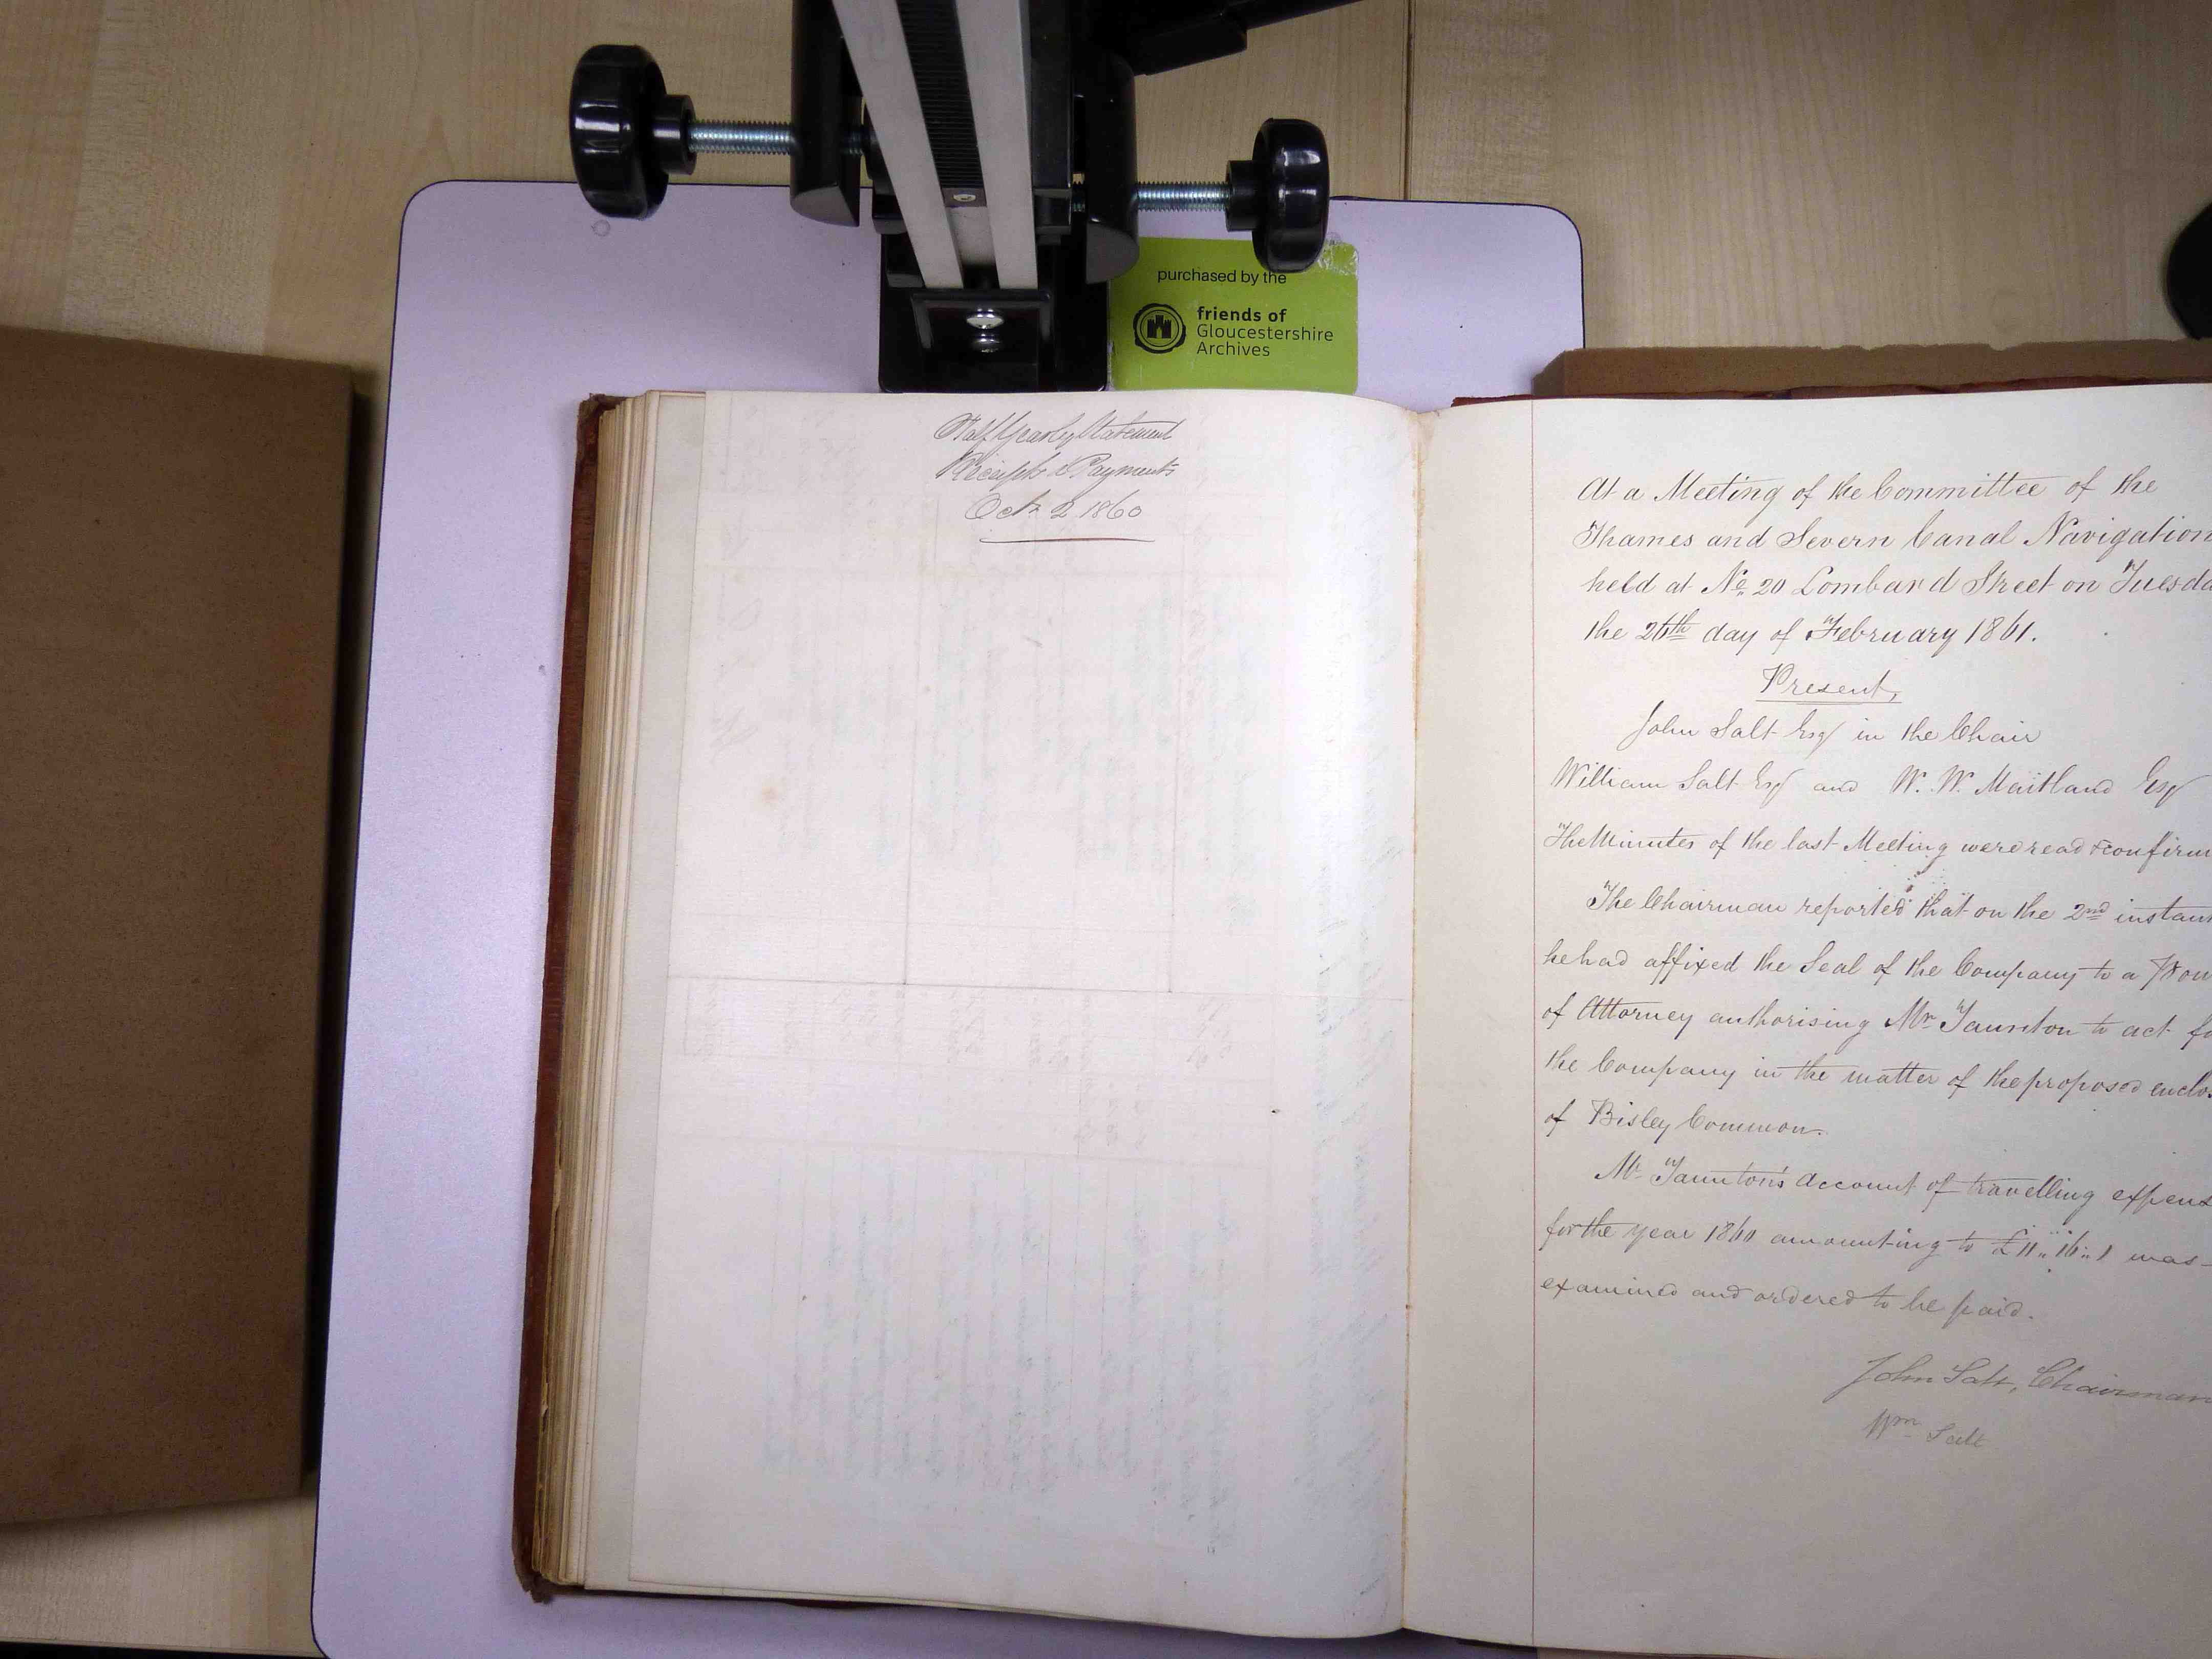 purchased by the
friends of
Gloucestershire
Archives
Half Yearly Statement
Receipts & Payments
Octr 2 1860
At a Meeting of the Committee of the
Thames and Severn Canal Navigation
held at No. 20 Lombard Street on Tuesda
the 26th day of February 1861.
Present,
John Salt Esq in the Chair
William Salt Esq and W. W. Maitland Esq
The Minutes of the last Meeting were read & confirm
The Chairman reported that on the 2nd instant
he had affixed the Seal of the Company to a Pow
of Attorney authorising Mr Taunton to act fo
the Company in the matter of the proposed enclos
of Bisley Common.
Mr Taunton's account of travelling expens
for the year 1860 amounting to £11,, 16,, 1 was
examined and ordered to be paid.
John Salt, Chairman
Wm Salt